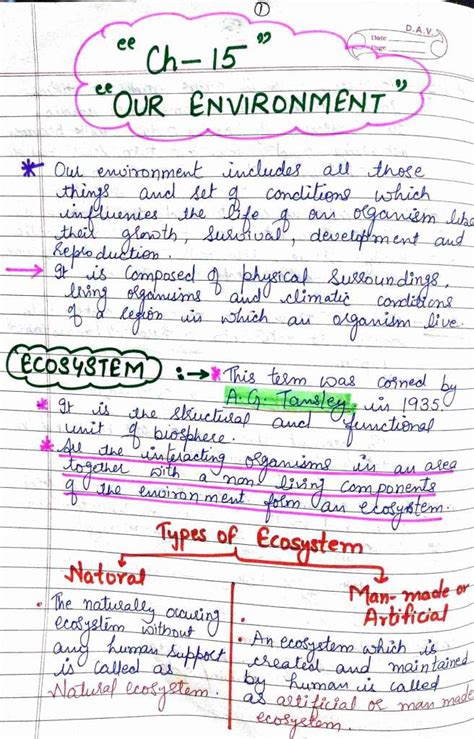 ①
D.A.V.
Date
Page
"Ch-15"
"OUR ENVIRONMENT"
* Our environment includes all those
things and set of conditions which
influenies the life of an organism like
their growth, survival, development and
Reproduction.
→ It is composed of physical surroundings,
living organisms and climatic conditions
of a region in which an organism live.
ECOSYSTEM :→* This term was corned by
A.G. Tansley, in 1935.
* It is the structural and functional
unit of biosphere.
* All the interacting organisms in an area
together with a non living components
of the environment form an ecosystem.
Types of Ecosystem
Natural
Man-made or
Artificial
• The naturally occuring
ecosystem without
any human support
is called as
Natural ecosystem.
• An ecosystem which is
created and maintained
by human is called
as artificial or man made
ecosystem.